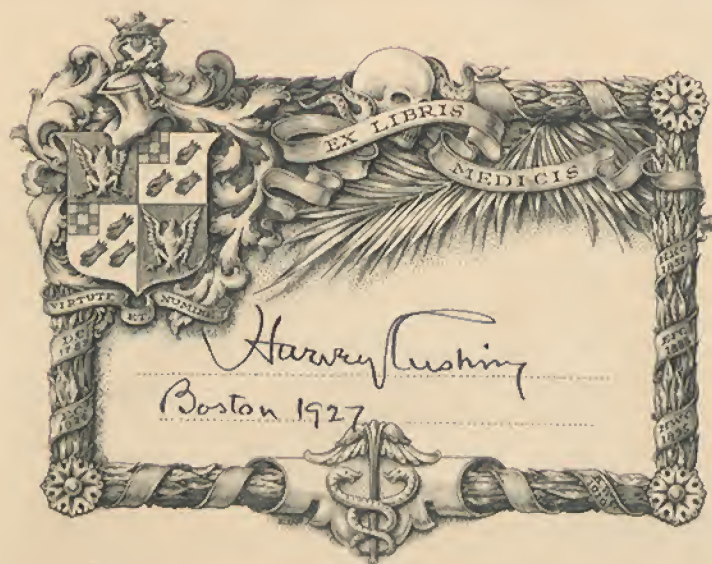 EX LIBRIS
MEDICIS
VIRTUTE ET NUMINE
Harvey Cushing
Boston 1927
D.C.
H.K.C.
E.F.C.
H.W.C.